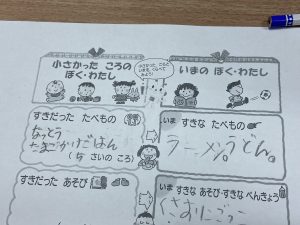 小さかった ころの
ぼく・わたし
いまの ぼく・わたし
すきだった たべもの
なっとう
たまごかけごはん
(5 さいの ころ)
いま すきな たべもの
ラーメン。うどん。
すきだった あそび
いま すきな あそび・すきな べんきょう